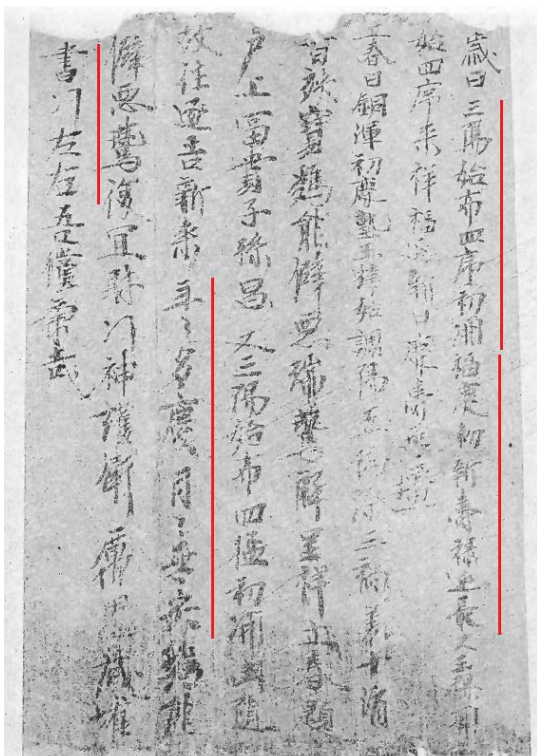 歲日三陽始布四序初開福慶初新壽祿延長又三陽
始四序來祥福延新日慶壽無疆
立春日銅渾初慶墊玉律始調陽五福除三禍万古消
百殃寶鷄能僻惡瑞鷰解呈祥立春題
戶上富貴子孫昌又三陽始布四猛初開幽隨
故往逐吉新來年々多慶月々無災鷄能
僻惡鷰復宜財門神護衛厲鬼藏埋
書門左右吾儻康哉